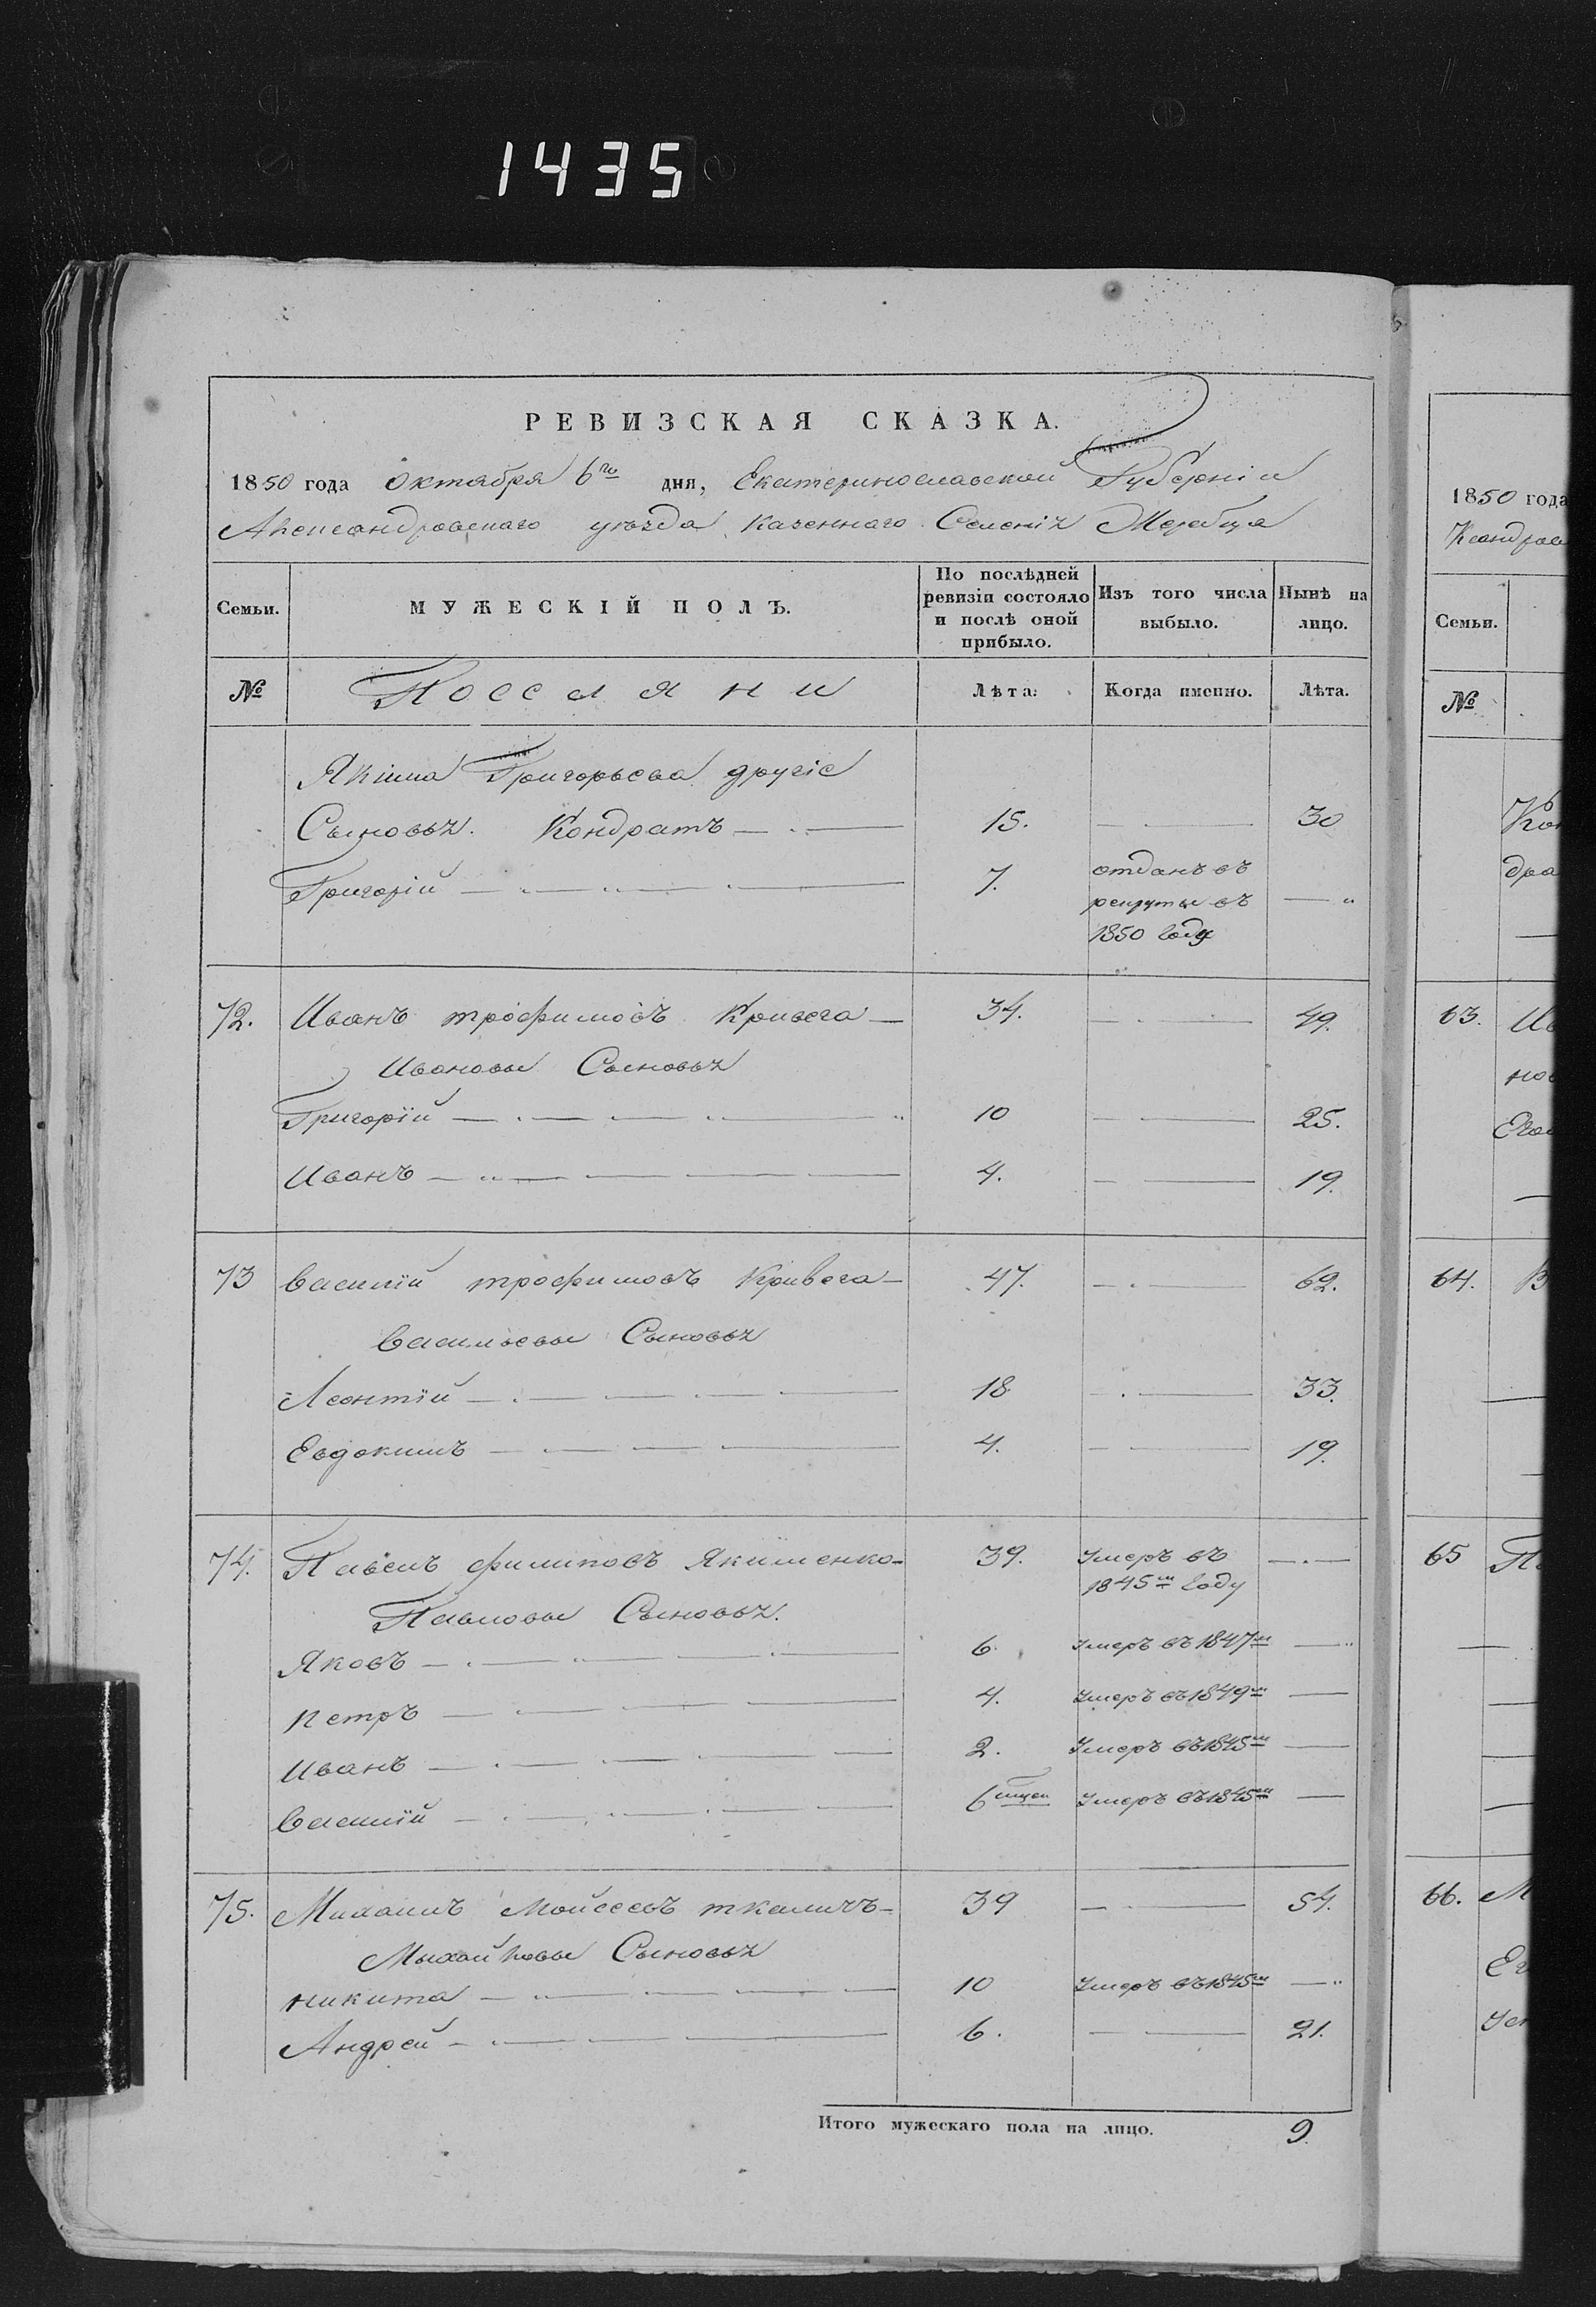 1435
РЕВИЗСКАЯ СКАЗКА.
1850 года Октября 6го дня, Екатеринославской Губерніи
Александровскаго уѣзда Казеннаго Селенія Жеребца
Семьи. МУЖЕСКІЙ ПОЛЪ. По послѣдней ревизіи состояло и послѣ оной прибыло. Изъ того числа выбыло. Нынѣ на лицо.
№ Поселяни Лѣта. Когда именно. Лѣта.
Якима Григорьева другіе
Сыновья. Кондратъ 15. 30
Григорій 7. отданъ въ рекруты въ 1850 году
72. Иванъ трофимовъ Кривега 34. 49.
Ивановы Сыновья
Григорій 10 25.
Иванъ 4. 19.
73 Василій трофимовъ Кривега 47. 62.
Васильевы Сыновья
Леонтій 18 33.
Евдокимъ 4. 19.
74. Павелъ филиповъ Якименко 39. Умеръ въ 1845м году
Павловы Сыновья.
Яковъ 6. Умеръ въ 1847м
Петръ 4. Умеръ въ 1849м
Иванъ 2. Умеръ въ 1845м
Василій 6 Умеръ въ 1845м
75. Михаилъ Мойсеевъ ткаличъ 39 54.
Михайловы Сыновья
Никита 10 Умеръ въ 1845м
Андрей 6. 21.
Итого мужескаго пола на лицо. 9.
1850 года
Семьи.
№
63.
64.
65
66.